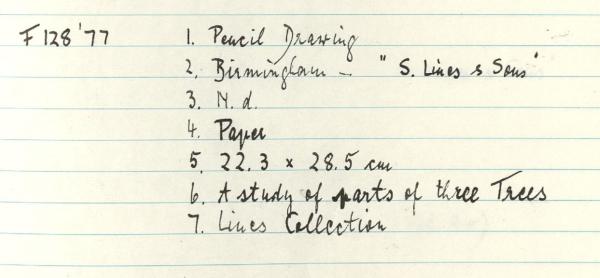 F 128 '77 1. Pencil Drawing
2. Birmingham – "S. Lines & Sons"
3. N. d.
4. Paper
5. 22.3 x 28.5 cm
6. A study of parts of three Trees
7. Lines Collection